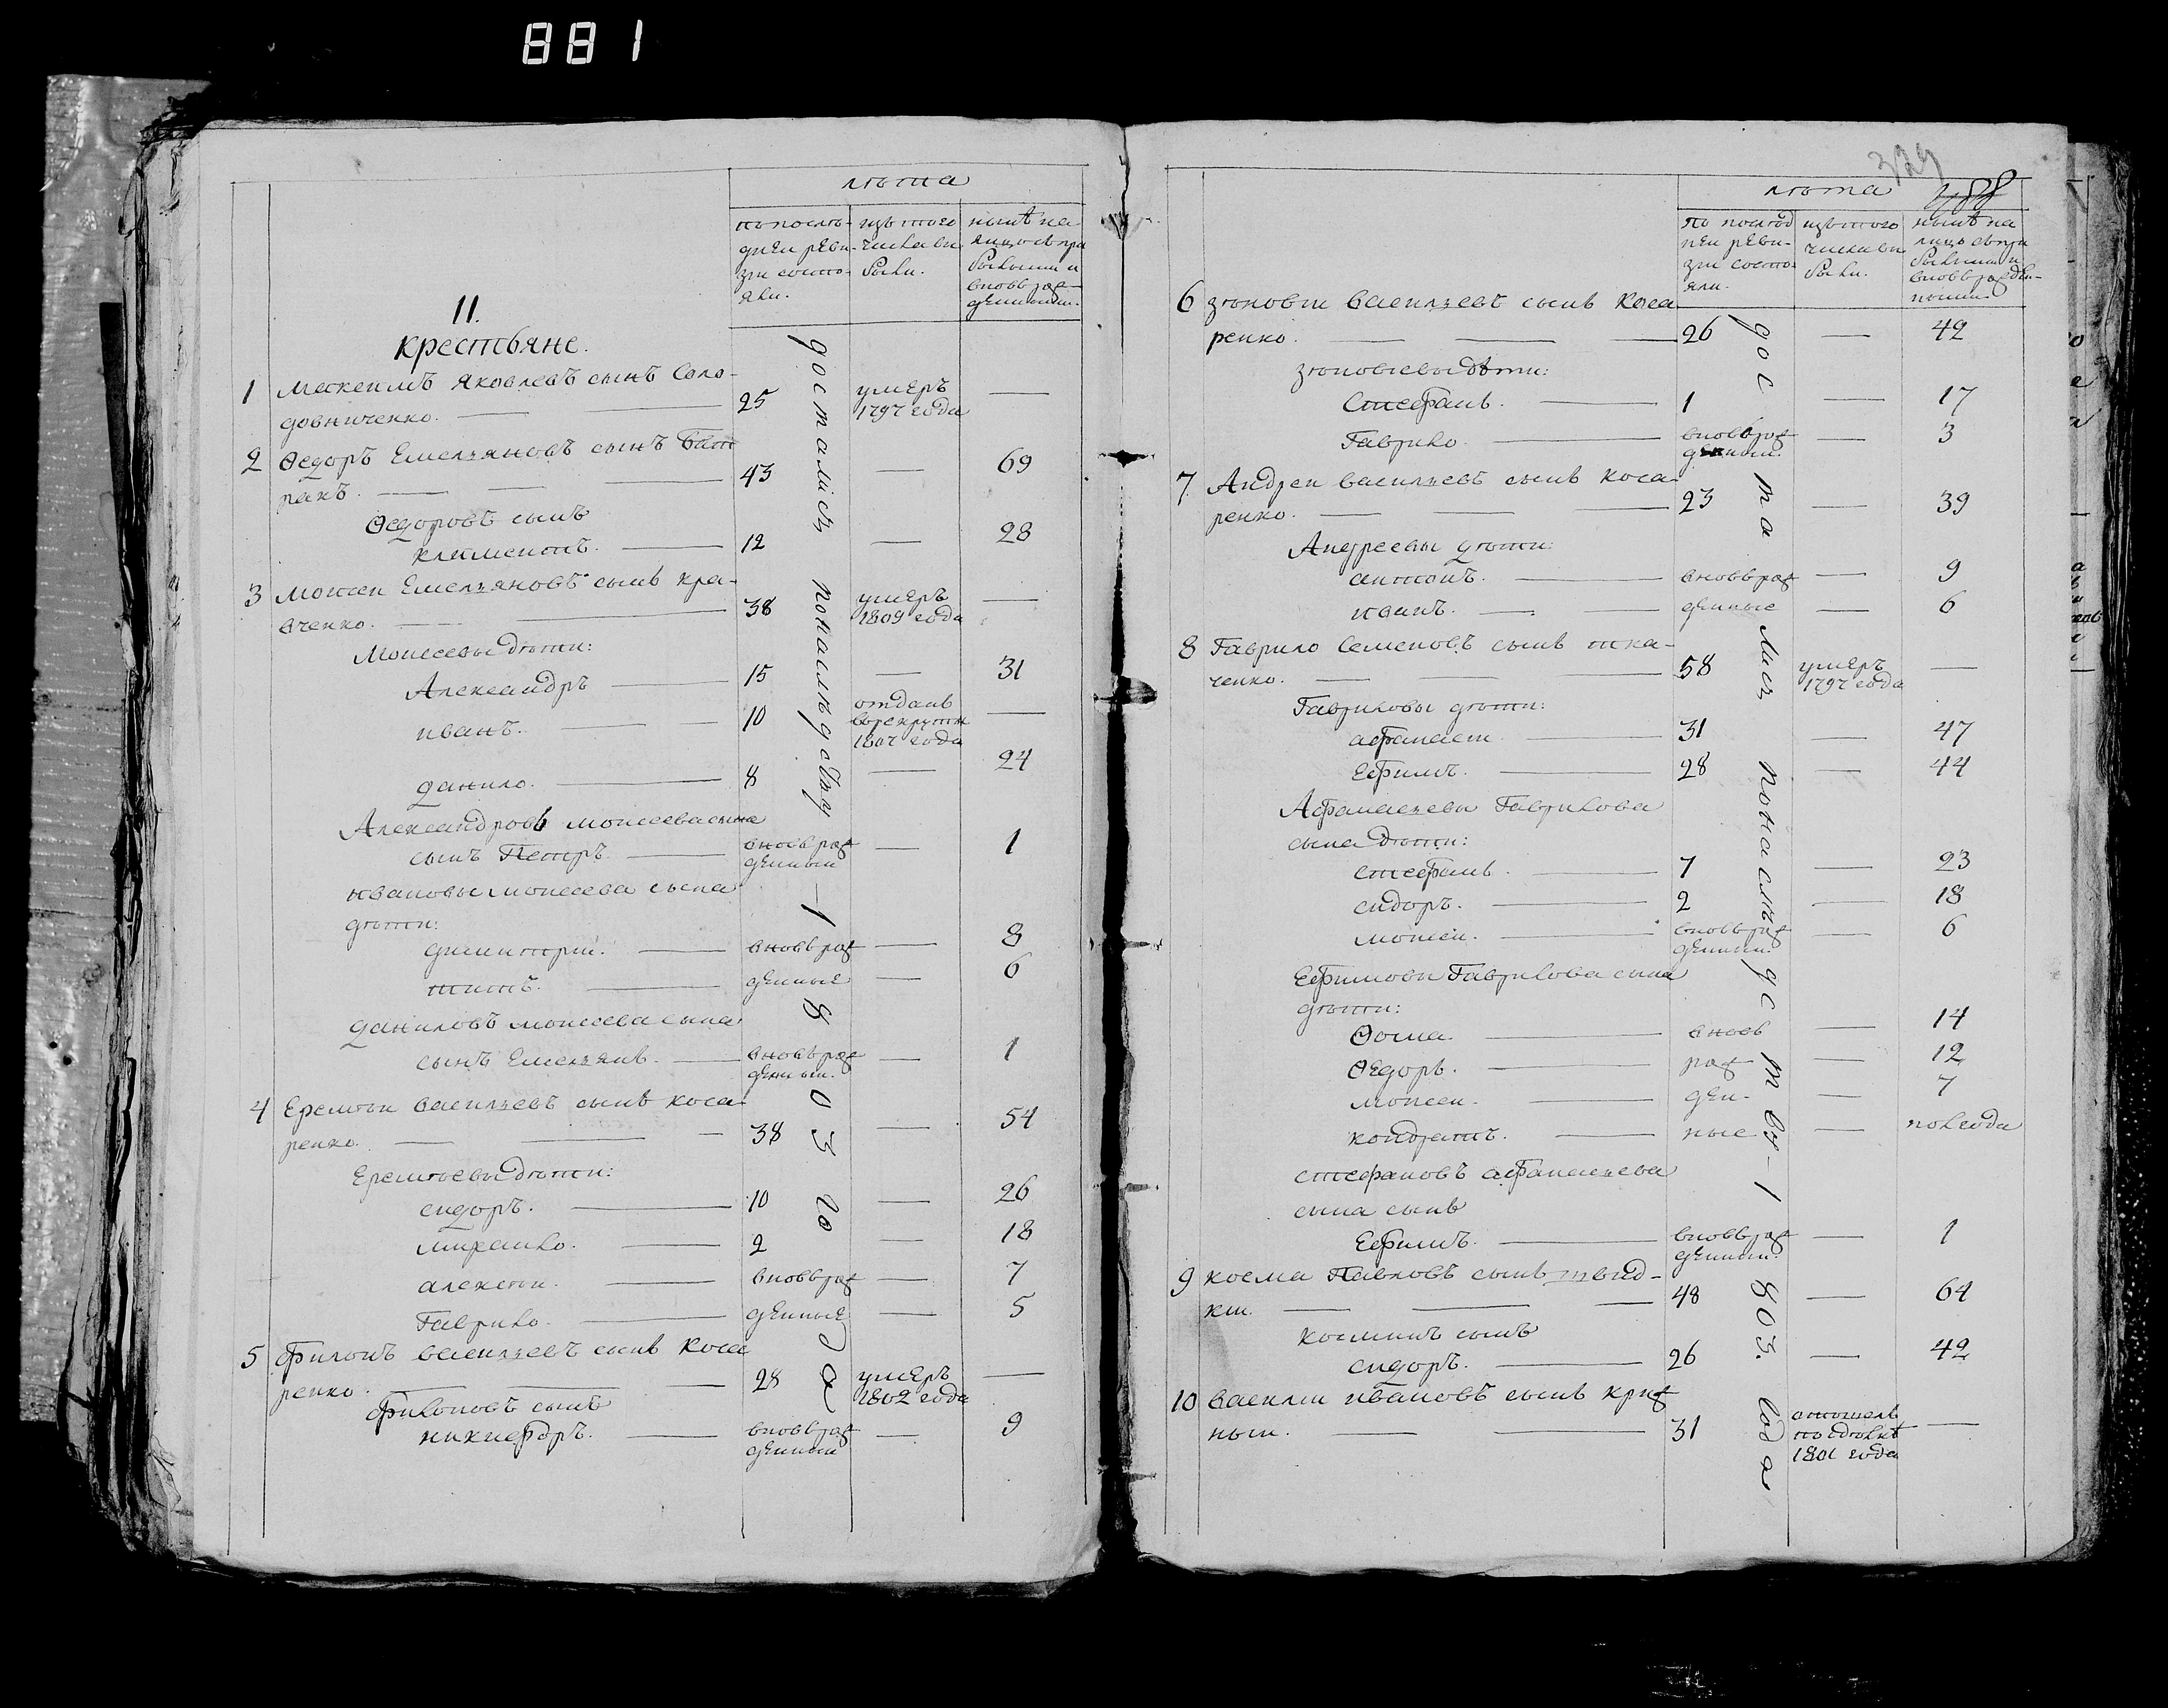 881
лѣта
по послѣ-
дней реви-
зіи состо-
яли.
изъ того
числа вы
были.
нынѣ на
лицо съ при
былыми и
вновь рож-
денными.
II.
крестьяне.
1 Максимъ Яковлевъ сынъ Соло-
довниченко. 25 умеръ 1797 года
2 Ѳедоръ Емельяновъ сынъ Бат
ракъ. 43 69
Ѳедоровъ сынъ
климентъ. 12 28
3 Моисей Емельяновъ сынъ кра-
вченко. 38 умеръ 1809 года
Моисеевы дѣти:
Александръ 15 31
иванъ. 10 отданъ в рекруты 1807 года
данило. 8 24
Александровъ моисеева сына
сынъ Петръ. вновь рож денный 1
ивановы моисеева сына
дѣти:
димитрій. вновь рож 8
титъ. денные 6
даниловъ моисеева сына
сынъ Емельянъ. вновь рож денный. 1
4 Еремѣй васильевъ сынъ коса-
ренко. 38 54
Еремѣевы дѣти:
сидоръ. 10 26
михайло. 2 18
алексѣй. вновь рож 7
Гаврило. денные 5
5 филонъ васильевъ сынъ коса
ренко. 28 умеръ 1802 года
филоновъ сынъ
никифоръ. вновь рож денный 9
достались по наслѣдству 1803 года
329
лѣта
по послѣд
ней реви-
зіи состо-
яли.
изъ того
числа вы
были.
нынѣ на
лицо съ при
былыми и
вновь рожден-
ными.
6 зѣновій васильевъ сынъ коса
ренко. 26 42
зѣновіевы дѣти:
Стефанъ. 1 17
Гаврило. вновь рож денный. 3
7. Андрей васильевъ сынъ коса-
ренко. 23 39
Андреевы дѣти:
антонъ. вновь рож 9
иванъ. денные 6
8 Гаврило Семеновъ сынъ тка-
ченко. 58 умеръ 1797 года
Гавриловы дѣти:
афанасій. 31 47
Ефимъ. 28 44
Афанасьевы Гаврилова
сына дѣти:
стефанъ. 7 23
сидоръ. 2 18
моисей. вновь рож денный. 6
Ефимовы Гаврилова сына
дѣти:
Ѳома. вновь 14
Ѳедоръ. рож 12
моисей. ден- 7
кондратъ. ные полгода
стефановъ афанасьева
сына сынъ
Ефимъ. вновь рож денный. 1
9 косма Павловъ сынъ швид-
кій. 48 64
косминъ сынъ
сидоръ. 26 42
10 василій ивановъ сынъ криж
ный. 31 отошелъ 1801 года
достались по наслѣдству 1803. года